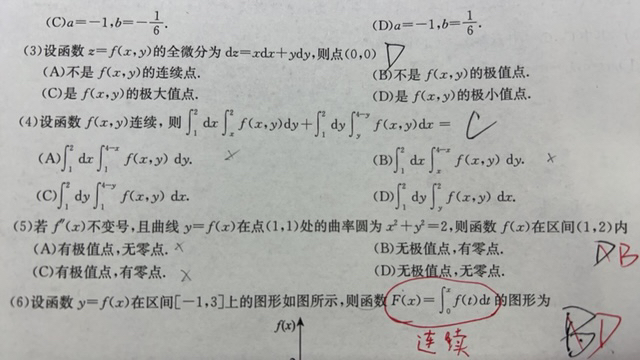 (C)a=-1,b=-1/6. (D)a=-1,b=1/6.
(3)设函数 z=f(x,y)的全微分为 dz=xdx+ydy,则点(0,0) D
(A)不是 f(x,y)的连续点. (B)不是 f(x,y)的极值点.
(C)是 f(x,y)的极大值点. (D)是 f(x,y)的极小值点.
(4)设函数 f(x,y)连续,则∫₁²dx∫ₓ²f(x,y)dy+∫₁²dy∫ᵧ⁴⁻ʸf(x,y)dx= C
(A)∫₁²dx∫₁⁴⁻ˣf(x,y) dy. × (B)∫₁²dx∫ₓ⁴⁻ˣf(x,y) dy. ×
(C)∫₁²dy∫₁⁴⁻ʸf(x,y) dx. (D)∫₁²dy∫ᵧ²f(x,y) dx.
(5)若 f″(x)不变号,且曲线 y=f(x)在点(1,1)处的曲率圆为 x²+y²=2,则函数 f(x)在区间(1,2)内
(A)有极值点,无零点. × (B)无极值点,有零点. D B
(C)有极值点,有零点. × (D)无极值点,无零点.
(6)设函数 y=f(x)在区间[-1,3]上的图形如图所示,则函数 F(x)=∫₀ˣf(t)dt 的图形为
连续 D
f(x)